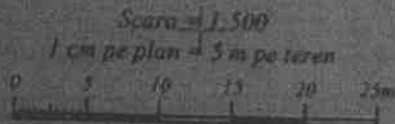 Scara = 1:500
1 cm pe plan = 5 m pe teren
0 5 10 15 20 25m